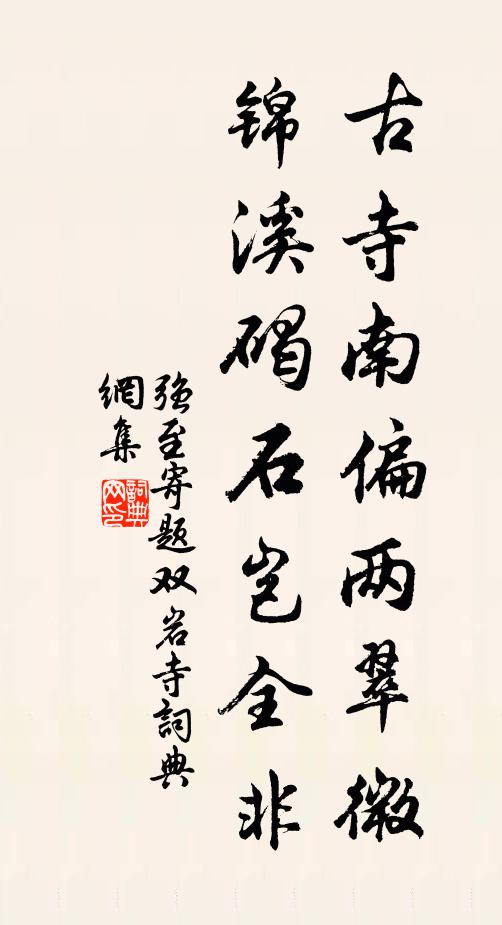 古寺南偏两翠微
锦溪碣石岂全非
强至寄题双岩寺詞典
網集
詞典
网印